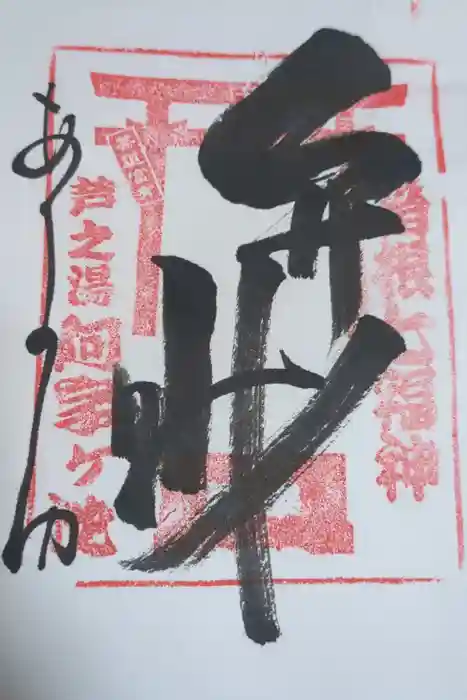 箱根七福神
弁財
芦之湯 阿字ヶ池
あしのゆ